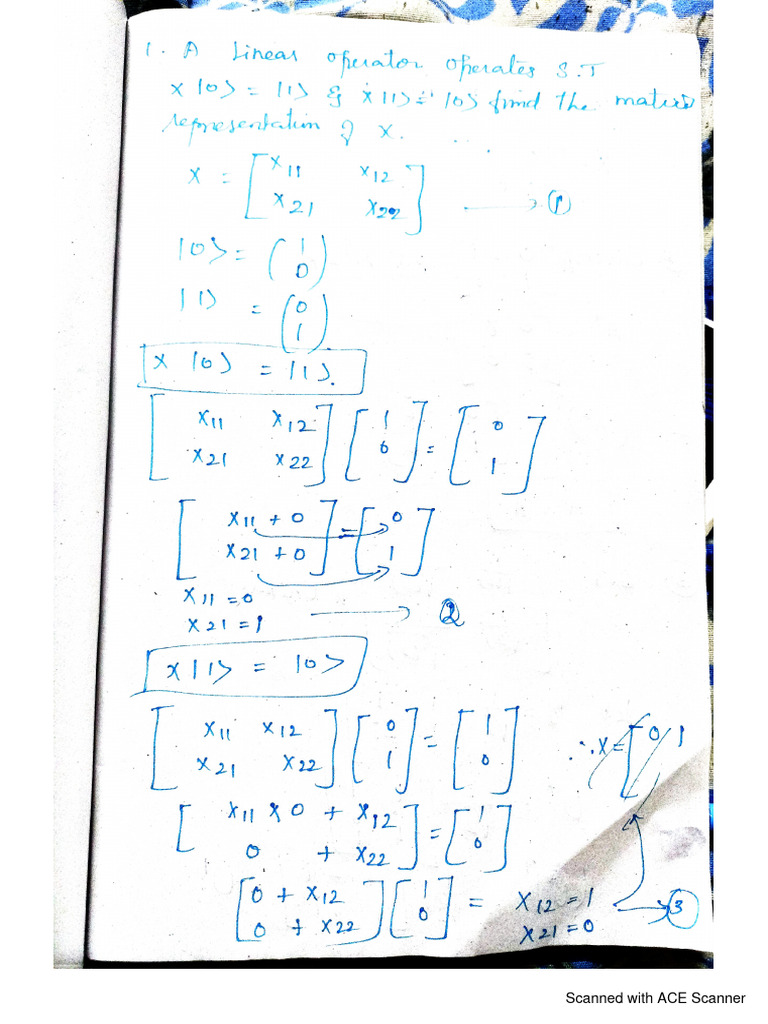 1. A Linear operator operates S.T
X |0> = |1> & X |1> = |0> find the matrix
representation of X.
X = [ X11 X12
X21 X22 ] → ①
|0> = ( 1
0 )
|1> = ( 0
1 )
X |0> = |1>.
[ X11 X12
X21 X22 ] [ 1
0 ] = [ 0
1 ]
[ X11 + 0
X21 + 0 ] = [ 0
1 ]
X11 = 0
X21 = 1 → ②
X |1> = |0>
[ X11 X12
X21 X22 ] [ 0
1 ] = [ 1
0 ]
∴ X = [ 0 1
[ X11 X 0 + X12
0 + X22 ] = [ 1
0 ]
[ 0 + X12
0 + X22 ] [ 1
0 ] = X12 = 1
X21 = 0 → ③
Scanned with ACE Scanner